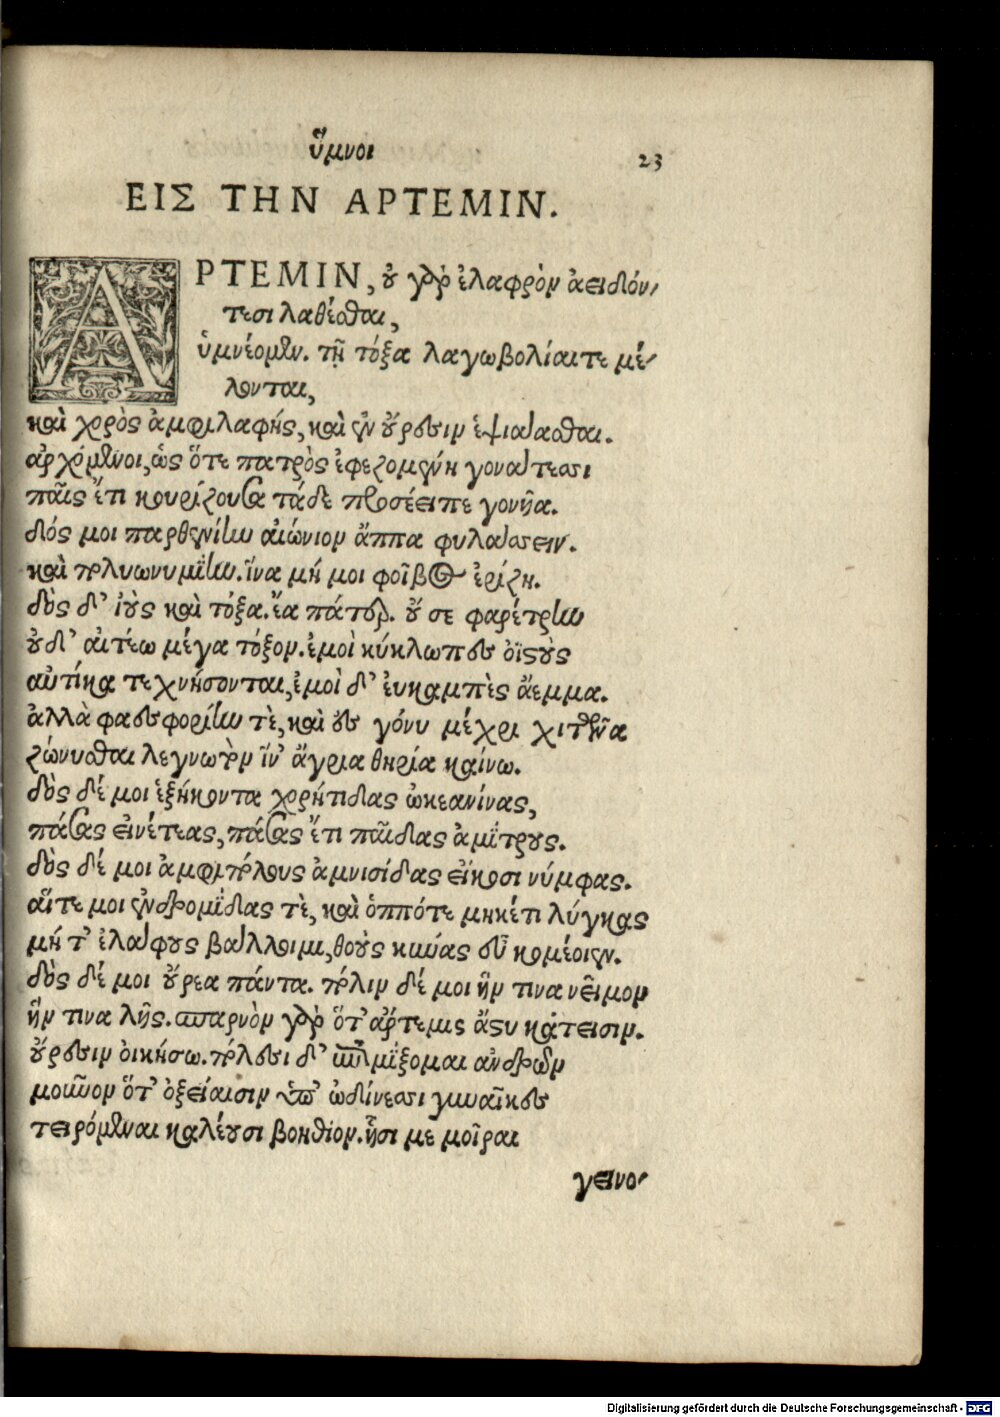 ὕμνοι 23
ΕΙΣ ΤΗΝ ΑΡΤΕΜΙΝ.
ΑΡΤΕΜΙΝ, οὐ γὰρ ἐλαφρὸν ἀειδόν-
τεσι λαθέσθαι,
ὑμνέομεν. τῇ τόξα λαγωβολίαιτε μέ-
λονται,
καὶ χορὸς ἀμφιλαφής, καὶ ἐν οὔρεσιν ἑψιάασθαι.
ἀρχόμενοι, ὡς ὅτε πατρὸς ἐφεζομένη γονάτεσσι
παῖς ἔτι κουρίζουσα τάδε προσέειπε γονῆα.
δός μοι παρθενίην αἰώνιον ἄππα φυλάσσειν.
καὶ πολυωνυμίην. ἵνα μή μοι φοῖβος ἐρίζῃ.
δὸς δ' ἰοὺς καὶ τόξα. ἔα πάτερ. οὔ σε φαρέτρην
οὐδ' αἰτέω μέγα τόξον. ἐμοὶ κύκλωπες ὀϊστοὺς
αὐτίκα τεχνήσονται, ἐμοὶ δ' ἐυκαμπὲς ἄεμμα.
ἀλλὰ φαεσφορίην τὲ, καὶ ἐς γόνυ μέχρι χιτῶνα
ζώννυσθαι λεγνωτὸν ἵν' ἄγρια θηρία καίνω.
δὸς δέ μοι ἑξήκοντα χορήτιδας ὠκεανίνας,
πάσας εἰνέτεας, πάσας ἔτι παῖδας ἀμίτρους.
δὸς δέ μοι ἀμφιπόλους ἀμνισίδας εἴκοσι νύμφας.
αἵτε μοι ἐνδρομίδας τὲ, καὶ ὁππότε μηκέτι λύγκας
μήτ' ἐλάφους βάλλοιμι, θοοὺς κύνας εὖ κομέοιεν.
δὸς δέ μοι οὔρεα πάντα. πόλιν δέ μοι ἥν τινα νεῖμον
ἥν τινα λῇς. σπαρνὸν γὰρ ὅτ' ἄρτεμις ἄστυ κάτεισιν.
οὔρεσιν οἰκήσω. πόλεσι δ' ἐπιμίξομαι ἀνδρῶν
μοῦνον ὅτ' ὀξείαισιν ὑπ' ὠδίνεσσι γυναῖκες
τειρόμεναι καλέουσι βοηθόον. ᾗσί με μοῖραι
γεινο-
Digitalisierung gefördert durch die Deutsche Forschungsgemeinschaft - DFG